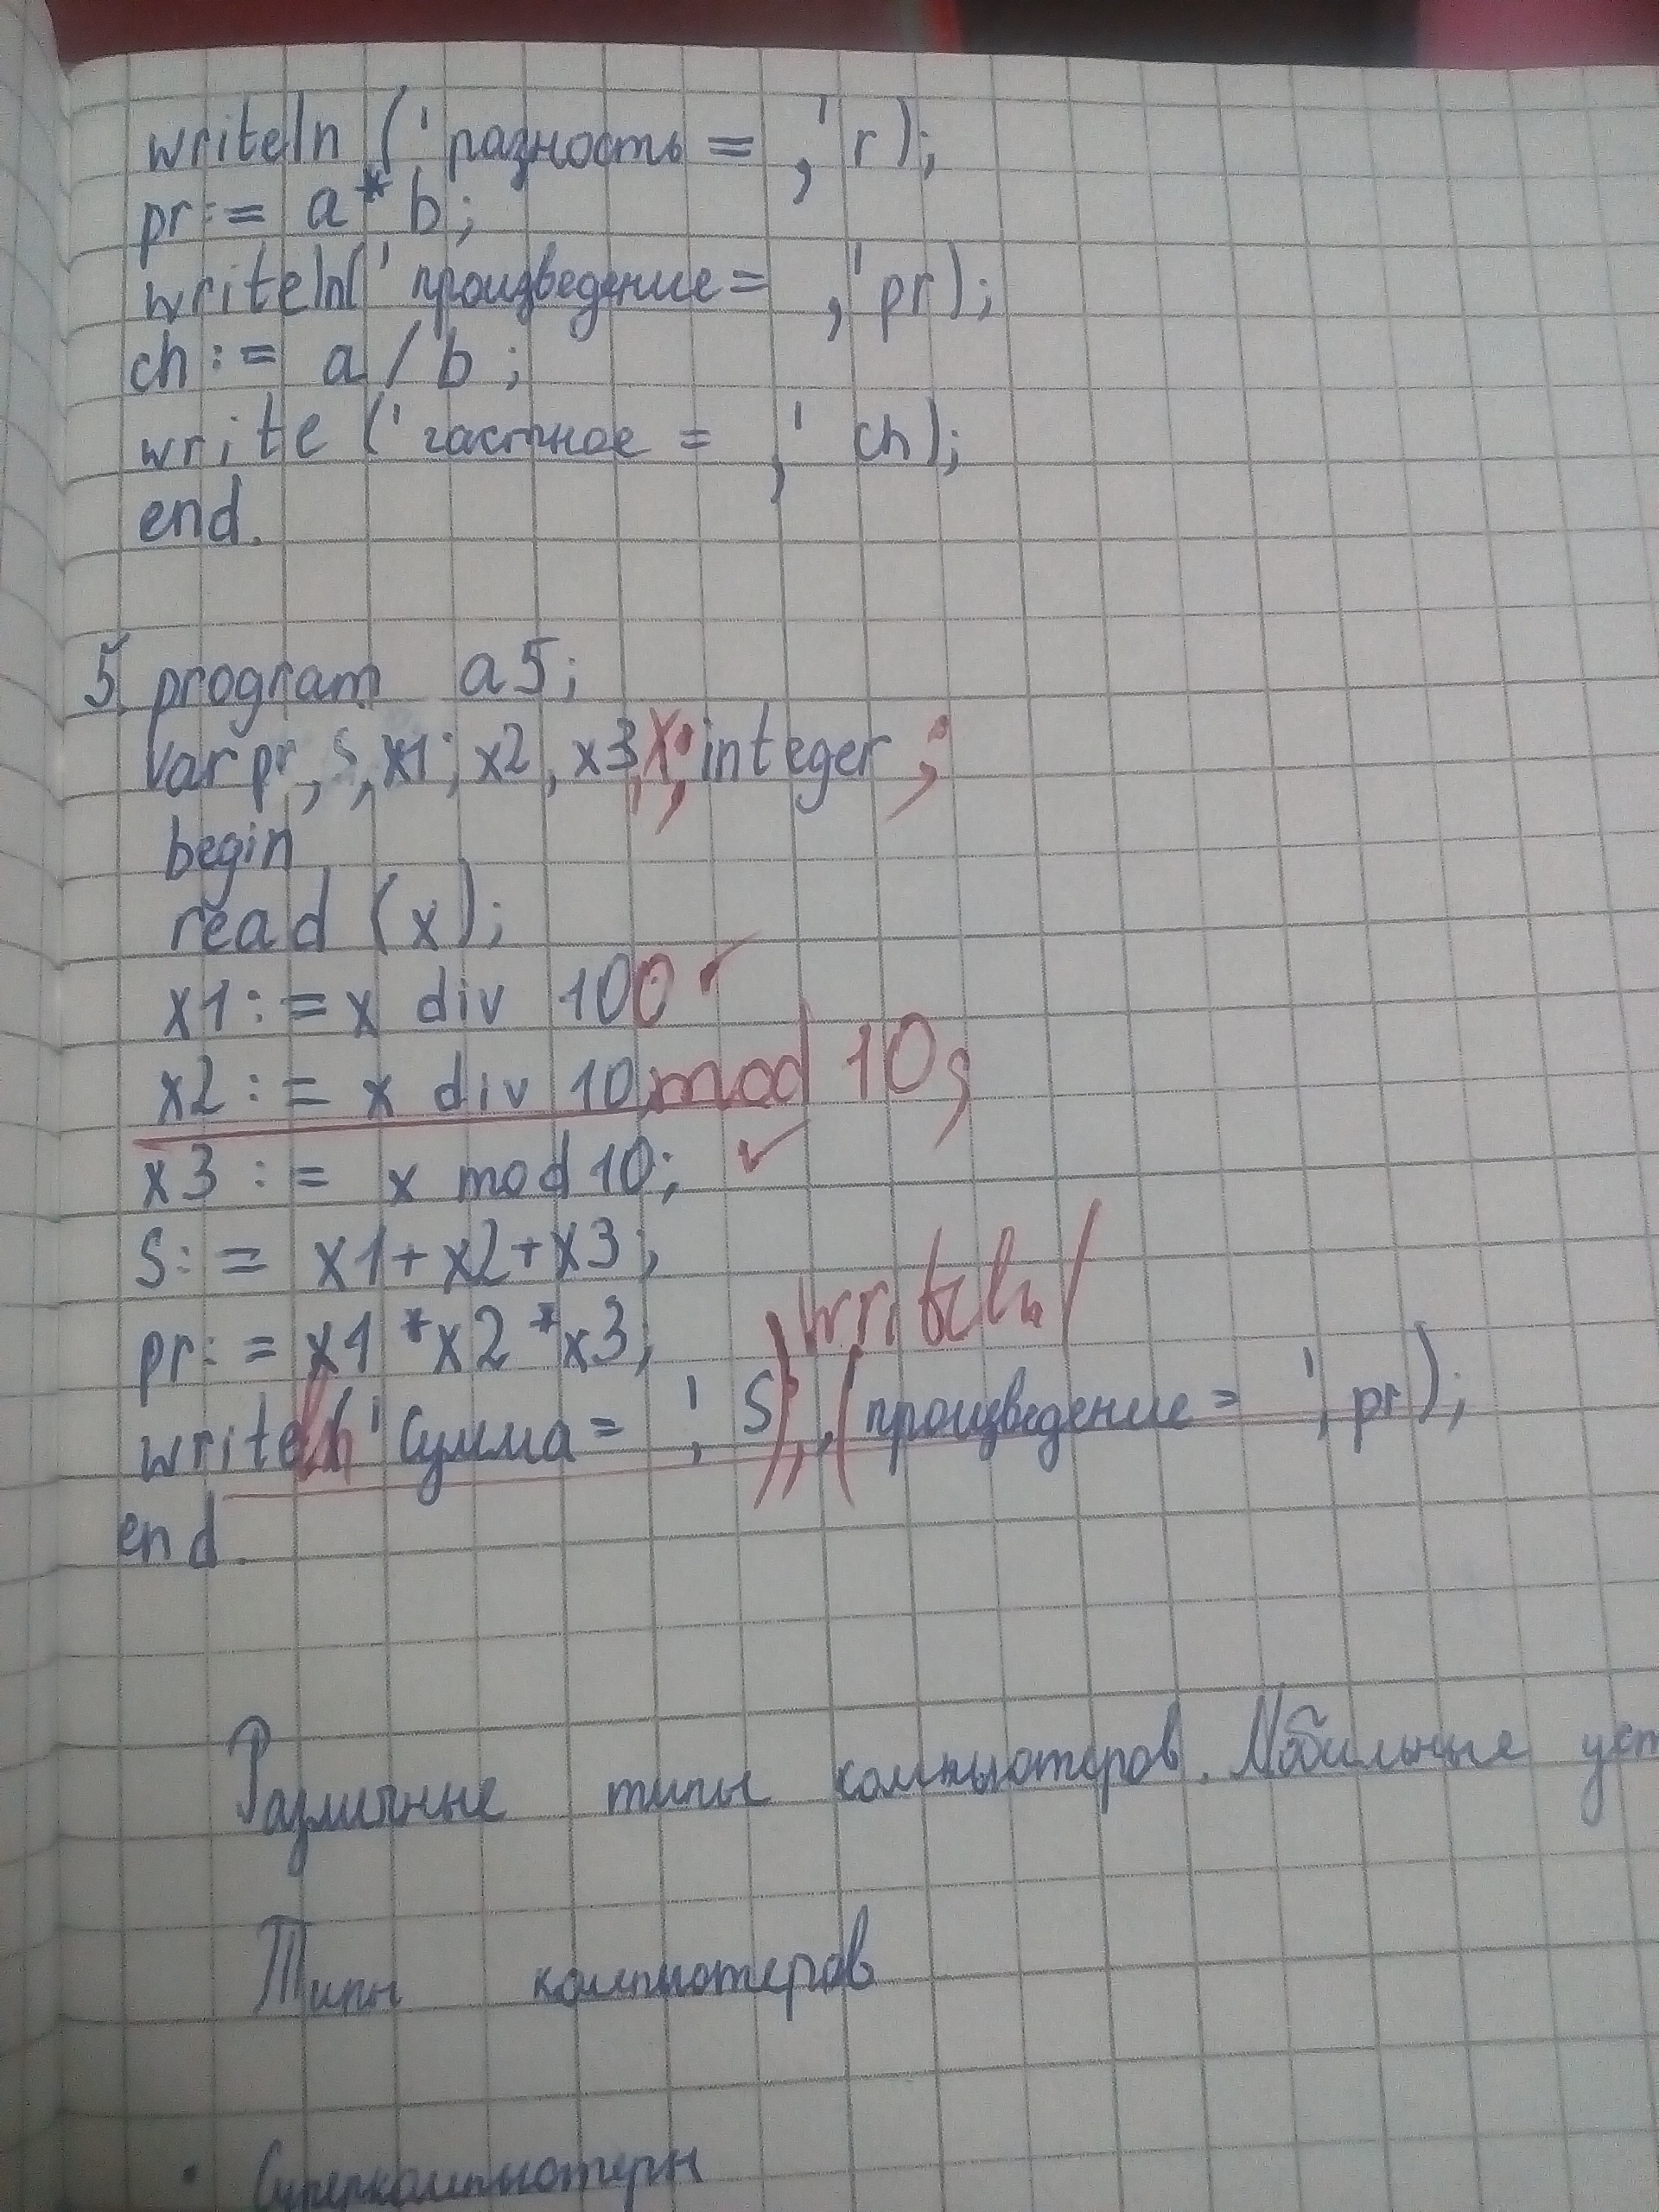 writeln (' разность = ,' r);
pr := a * b;
writeln(' произведение = ,' pr);
ch := a / b ;
write (' частное = ,' ch);
end.
5. program a5;
var pr, s, x1; x2, x3, x: integer ;
begin
read (x);
x1 := x div 100
x2 := x div 10 mod 10;
x3 := x mod 10;
S := x1 + x2 + x3;
writeln
pr := x1 * x2 * x3;
writeln(' Сумма = ', S);, (произведение = ', pr);
end.
Различные типы компьютеров. Мобильные уст
Типы компьютеров
• Суперкомпьютеры